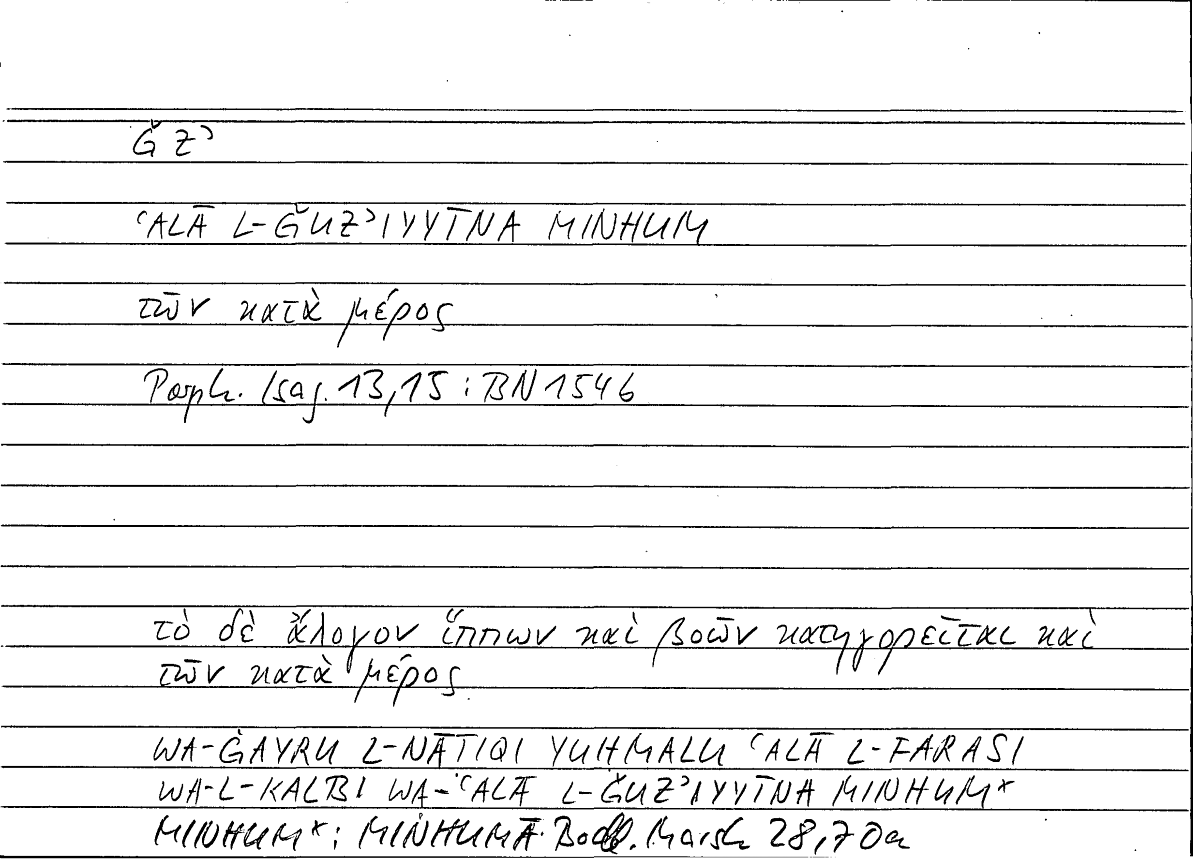 Ǧ Zʾ
ʿALĀ L-ǦUZʾIYYĪNA MINHUM
τῶν κατὰ μέρος
Porph. Isag. 13,15 : BN 1546
τὸ δὲ ἄλογον ἵππων καὶ βοῶν κατηγορεῖται καὶ
τῶν κατὰ μέρος
WA-ĠAYRU L-NĀTIQI YUHMALU ʿALĀ L-FARASI
WA-L-KALBI WA-ʿALĀ L-ǦUZʾIYYĪNA MINHUM*
MINHUM* : MINHUMĀ Bodl. Marsh 28,70a